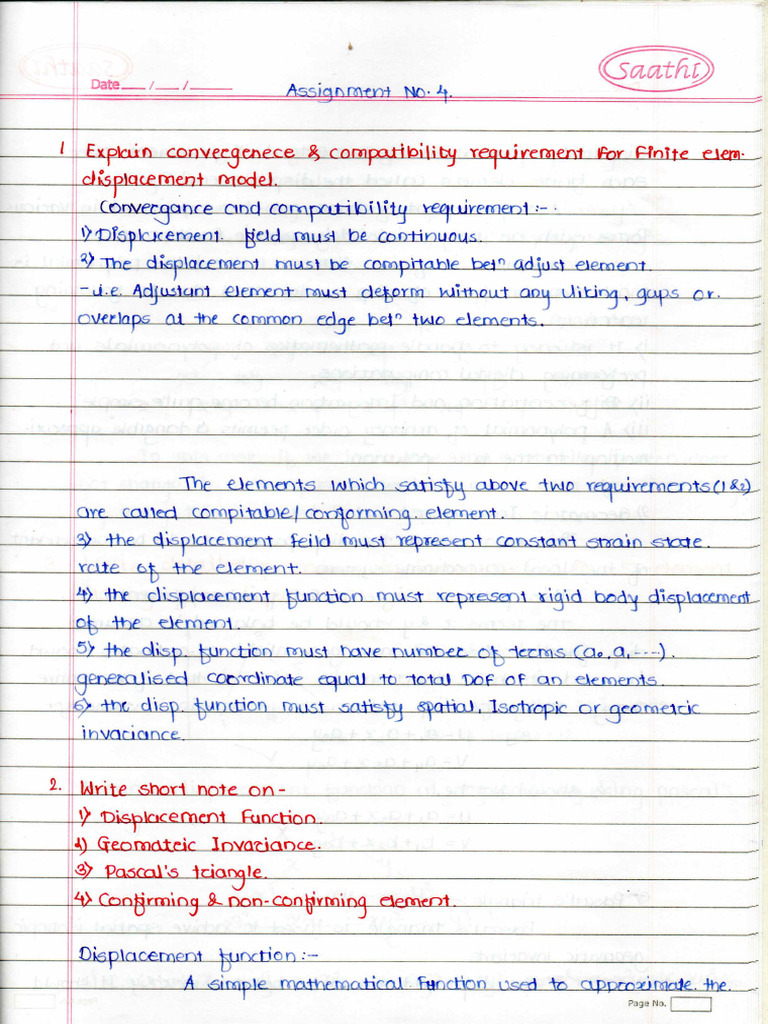 Saathi
Date ___ / ___ / ______
Assignment No. 4.
1 Explain convergenece & compatibility requirement for Finite elem.
displacement model.
Convergance and compatibility requirement :-
1) Displacement field must be continuous.
2) The displacement must be compitable betn adjust element.
- i.e. Adjustant element must deform without any gaps or
overlaps at the common edge betn two elements.
The elements which satisfy above two requirements (1 & 2)
are called compitable/conforming element.
3) the displacement feild must represent constant strain state.
rate of the element.
4) the displacement function must represent rigid body displacement
of the element.
5) the disp. function must have number of terms (a0, a1 ....).
generalised coordinate equal to total DOF of an elements.
6) the disp. function must satisfy spatial, Isotropic or geometric
invaciance.
2. Write short note on -
1) Displacement Function.
2) Geomatric Invaciance.
3) Pascal's triangle.
4) Confirming & non-confirming element.
Displacement function :-
A simple mathematical Function used to approximate the
Page No.